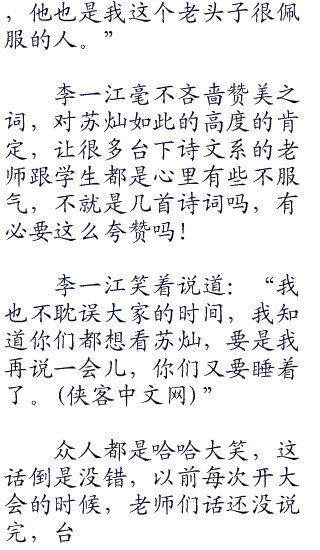 ，他也是我这个老头子很佩
服的人。”
李一江毫不吝啬赞美之
词，对苏灿如此的高度的肯
定，让很多台下诗文系的老
师跟学生都是心里有些不服
气，不就是几首诗词吗，有
必要这么夸赞吗！
李一江笑着说道：“我
也不耽误大家的时间，我知
道你们都想看苏灿，要是我
再说一会儿，你们又要睡着
了。(侠客中文网)”
众人都是哈哈大笑，这
话倒是没错，以前每次开大
会的时候，老师们话还没说
完，台